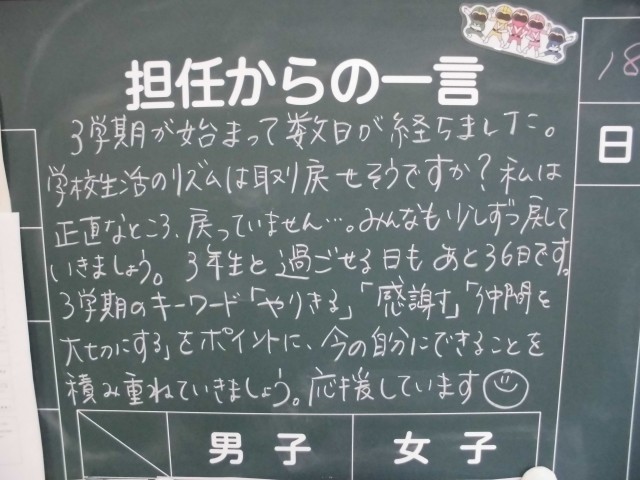 担任からの一言
18
日
3学期が始まって数日が経ちました。
学校生活のリズムは取り戻せそうですか?私は
正直なところ、戻っていません…。みんなも少しずつ戻して
いきましょう。3年生と過ごせる日もあと36日です。
3学期のキーワード「やりきる」「感謝」「仲間を
大切にする」をポイントに、今の自分にできることを
積み重ねていきましょう。応援しています
男子
女子